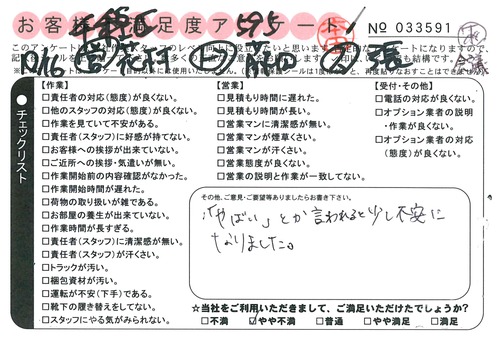 お客様満足度アンケート
№ 033591
【作業】
□責任者の対応(態度)が良くない。
□他のスタッフの対応(態度)が良くない。
□作業を見ていて不安がある。
□責任者(スタッフ)に好感が持てない。
□お客様への挨拶が出来ていない。
□ご近所への挨拶・気遣いが無い。
□作業開始前の内容確認がなかった。
□作業開始時間が遅れた。
□荷物の取り扱いが雑である。
□お部屋の養生が出来ていない。
□作業時間が長すぎる。
□責任者(スタッフ)に清潔感が無い。
□責任者(スタッフ)が汗くさい。
□トラックが汚い。
□梱包資材が汚い。
□運転が不安(下手)である。
□靴下の履き替えをしてない。
□スタッフにやる気がみられない。
【営業】
□見積もり時間に遅れた。
□見積もり時間が長い。
□営業マンに清潔感が無い。
□営業マンが煙草くさい。
□営業マンが汗くさい。
□営業態度が良くない。
□営業の説明と作業が一致してない。
【受付・その他】
□電話の対応が良くない。
□オプション業者の説明
・作業が良くない。
□オプション業者の対応
(態度)が良くない。
●チェックリスト
その他、ご意見・ご要望等ありましたらお書き下さい。
「やばい」とか言われると少し不安に
なりました。
☆当社をご利用いただきまして、ご満足いただけたでしょうか?
□不満 ☑やや不満 □普通 □やや満足 □満足